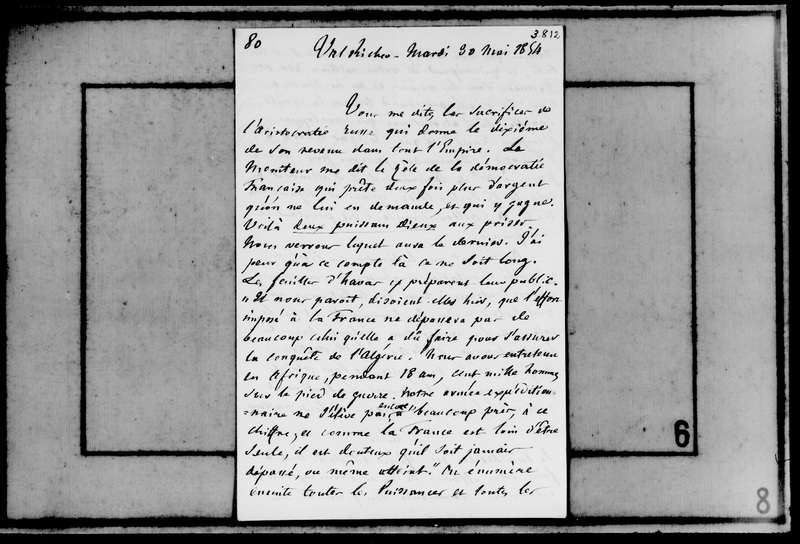 80
3.812
Val Richer - Mardi 30 Mai 1854
Vous me dites les sacrifices de
l'aristocratie russe qui donne le dixième
de son revenu dans tout l'Empire. Le
Moniteur me dit le zèle de la démocratie
Française qui prête deux fois plus d'argent
qu'on ne lui en demande, et qui y gagne.
Voilà deux puissans Dieux aux prises.
Nous verrons lequel aura le dernier. J'ai
peur qu'à ce compte là ce ne soit long.
Les feuilles d'havas y préparent leur public.
"Il nous paroit, disoient elles hier, que l'effort
imposé à la France ne dépassera pas de
beaucoup celui qu'elle a dû faire pour s'assurer
la conquête de l'Algérie. Nous avons entretenu
en Afrique, pendant 18 ans, cent mille hommes
sur le pied de guerre. Notre armée expédition-
=naire ne s'élève pas encore, à beaucoup près, à ce
chiffre, et comme la France est loin d'être
seule, il est douteux qu'il soit jamais
dépassé, ou même atteint." On énumère
ensuite toutes les Puissances et toutes les
6
8